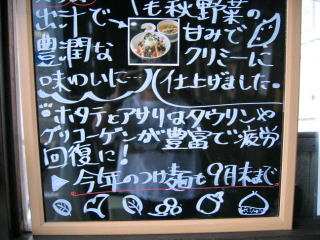 出汁で
豊潤な
味わいに
も秋野菜の
甘みで
クリミーに
仕上げました。
※ホタテとアサリはタウリンや
グリコーゲンが豊富で疲労
回復に!
▶今年のつけ麺も9月末まで